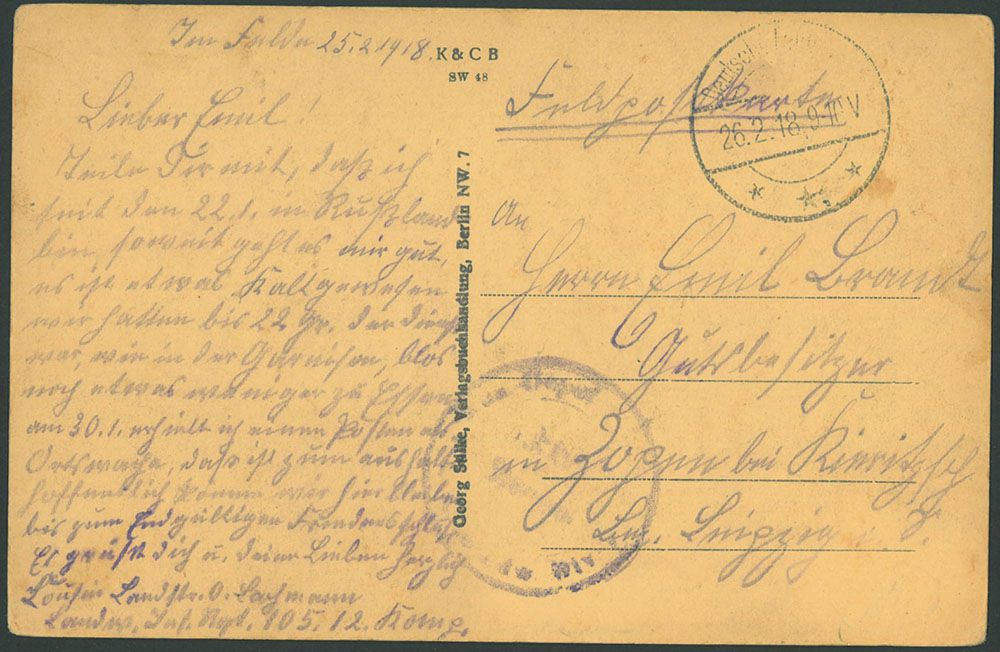 Im Felde 25.2.1918.
Lieber Emil!
Teile Dir mit, daß ich
seit den 22.1. in Rußland
bin, soweit geht es mir gut,
es ist etwas Kalt gewesen
wir hatten bis 22 Gr. der Dienst
war, wie in der Garnison, blos
noch etwas weniger zu Essen,
am 30.1. erhielt ich einen Posten als
Ortswache, daß ist zum aushalten
hoffentlich können wir hier bleiben
bis zum Endgültigen Friedensschluß
Es grüßt dich u. deine Lieben herzlich
Cousin Landstr. O. Lachmann
Landw. Inf. Rgt. 105. 12. Komp.
K & C B
SW 48
Georg Stilke, Verlagsbuchhandlung, Berlin NW. 7
Feldpostkarte
Deutsche
26.2.18.9-10 V
An
Herrn Emil Brandt
Gutsbesitzer
in Zöpen bei Kieritzsch
Leipzig i. S.